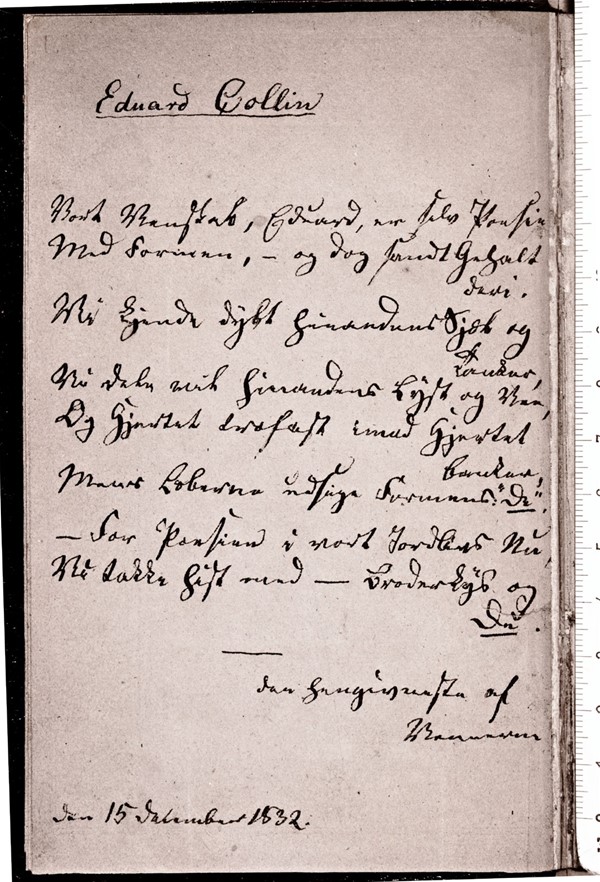 Eduard Collin
Vort Venskab, Eduard, er selv Poesie
Med Formen, – og dog sandt Gehalt
deri.
Vi kjende dybt hinandens Sjæl og
Tanker,
Vi dele nik hinandens Lyst og Vee,
Og Hjertet trofast imod Hjertet
banker,
Mens Læberne udsige Formens: "De".
– For Poesien i vort Jordlivs Nu,
Vi takke hist med – Broderkys og
Du.
den hengivneste af
Vennerne
den 15 December 1832.